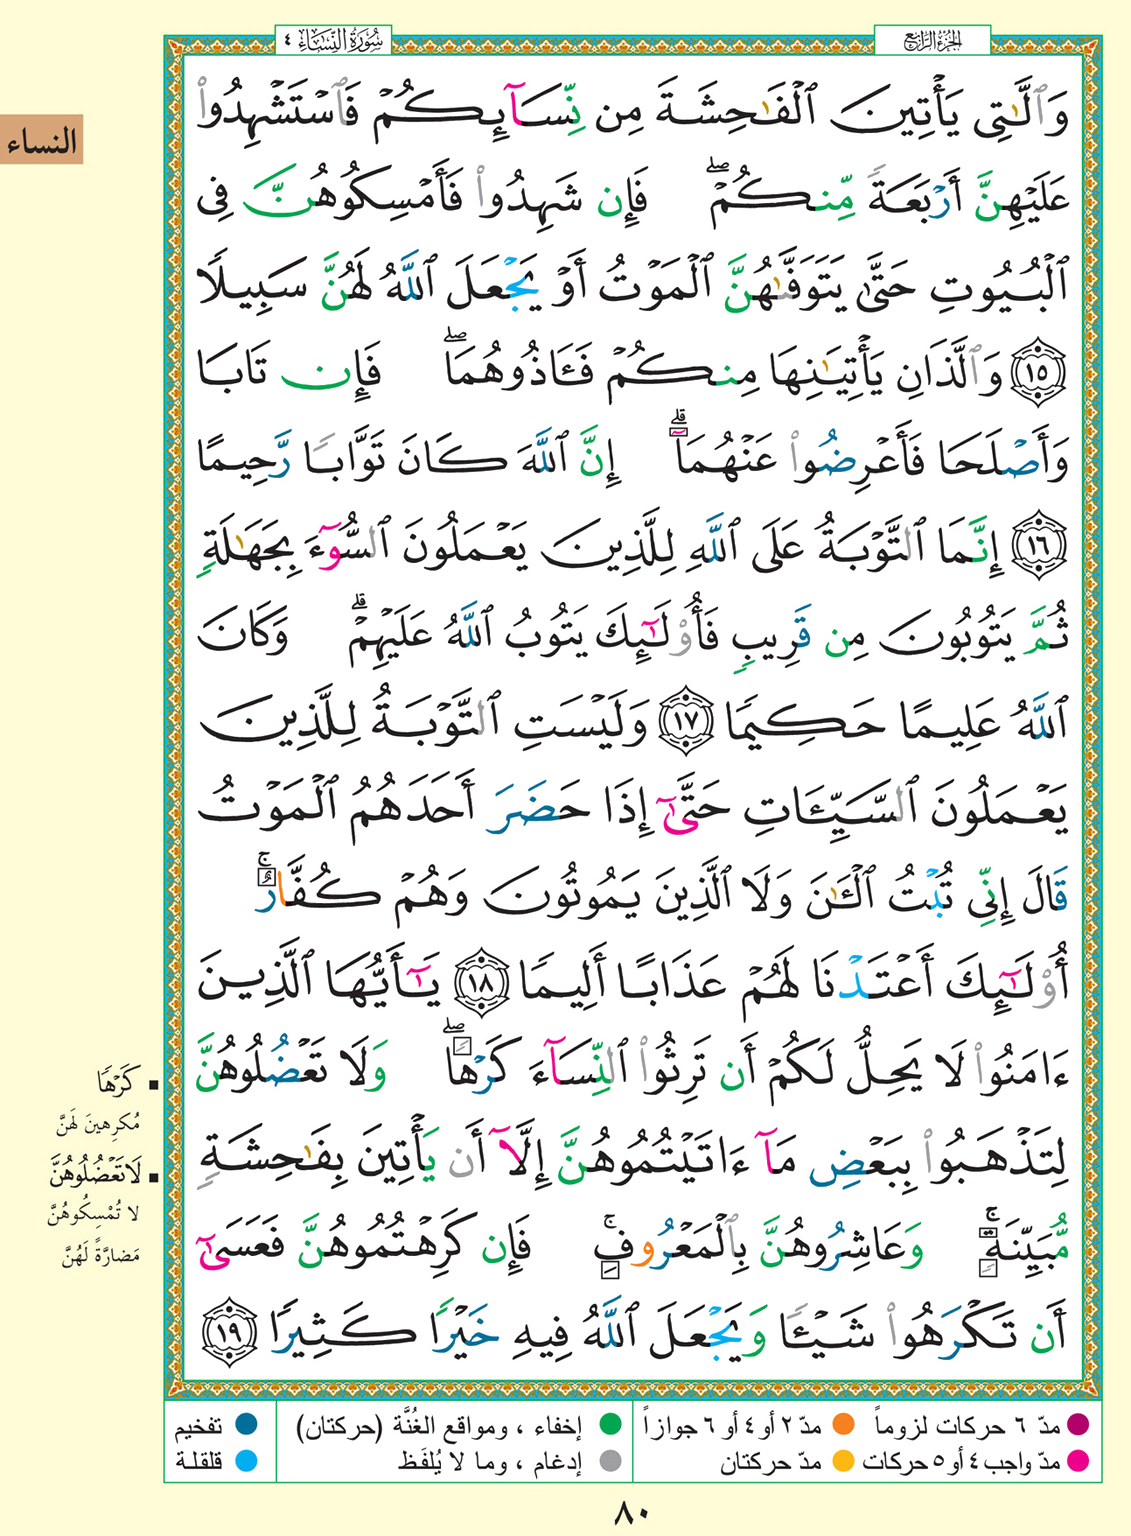 سُورَةُ النِّسَاءِ ٤
الجُزءُ الرَّابِع
النساء
وَٱلَّٰتِى يَأْتِينَ ٱلْفَٰحِشَةَ مِن نِّسَآئِكُمْ فَٱسْتَشْهِدُوا۟
عَلَيْهِنَّ أَرْبَعَةً مِّنكُمْ ۖ فَإِن شَهِدُوا۟ فَأَمْسِكُوهُنَّ فِى
ٱلْبُيُوتِ حَتَّىٰ يَتَوَفَّىٰهُنَّ ٱلْمَوْتُ أَوْ يَجْعَلَ ٱللَّهُ لَهُنَّ سَبِيلًا
١٥ وَٱلَّذَانِ يَأْتِيَٰنِهَا مِنكُمْ فَـَٔاذُوهُمَا ۖ فَإِن تَابَا
وَأَصْلَحَا فَأَعْرِضُوا۟ عَنْهُمَآ ۗ إِنَّ ٱللَّهَ كَانَ تَوَّابًا رَّحِيمًا
١٦ إِنَّمَا ٱلتَّوْبَةُ عَلَى ٱللَّهِ لِلَّذِينَ يَعْمَلُونَ ٱلسُّوٓءَ بِجَهَٰلَةٍ
ثُمَّ يَتُوبُونَ مِن قَرِيبٍ فَأُو۟لَٰٓئِكَ يَتُوبُ ٱللَّهُ عَلَيْهِمْ ۗ وَكَانَ
ٱللَّهُ عَلِيمًا حَكِيمًا ١٧ وَلَيْسَتِ ٱلتَّوْبَةُ لِلَّذِينَ
يَعْمَلُونَ ٱلسَّيِّـَٔاتِ حَتَّىٰٓ إِذَا حَضَرَ أَحَدَهُمُ ٱلْمَوْتُ
قَالَ إِنِّى تُبْتُ ٱلْـَٰٔنَ وَلَا ٱلَّذِينَ يَمُوتُونَ وَهُمْ كُفَّارٌ ۚ
أُو۟لَٰٓئِكَ أَعْتَدْنَا لَهُمْ عَذَابًا أَلِيمًا ١٨ يَٰٓأَيُّهَا ٱلَّذِينَ
ءَامَنُوا۟ لَا يَحِلُّ لَكُمْ أَن تَرِثُوا۟ ٱلنِّسَآءَ كَرْهًا ۖ وَلَا تَعْضُلُوهُنَّ
لِتَذْهَبُوا۟ بِبَعْضِ مَآ ءَاتَيْتُمُوهُنَّ إِلَّآ أَن يَأْتِينَ بِفَٰحِشَةٍ
مُّبَيِّنَةٍ ۚ وَعَاشِرُوهُنَّ بِٱلْمَعْرُوفِ ۚ فَإِن كَرِهْتُمُوهُنَّ فَعَسَىٰٓ
أَن تَكْرَهُوا۟ شَيْـًٔا وَيَجْعَلَ ٱللَّهُ فِيهِ خَيْرًا كَثِيرًا ١٩
كَرْهًا
مُكرِهينَ لَهنَّ
لَا تَعْضُلُوهُنَّ
لا تُمْسِكُوهُنَّ
مَضارَّةً لَهُنَّ
مدّ ٦ حركات لزوماً مدّ ٢ أو ٤ أو ٦ جوازاً إخفاء ، ومواقع الغُنَّة (حركتان) تفخيم
مدّ واجب ٤ أو ٥ حركات مدّ حركتان إدغام ، وما لا يُلفَظ قلقلة
٨٠